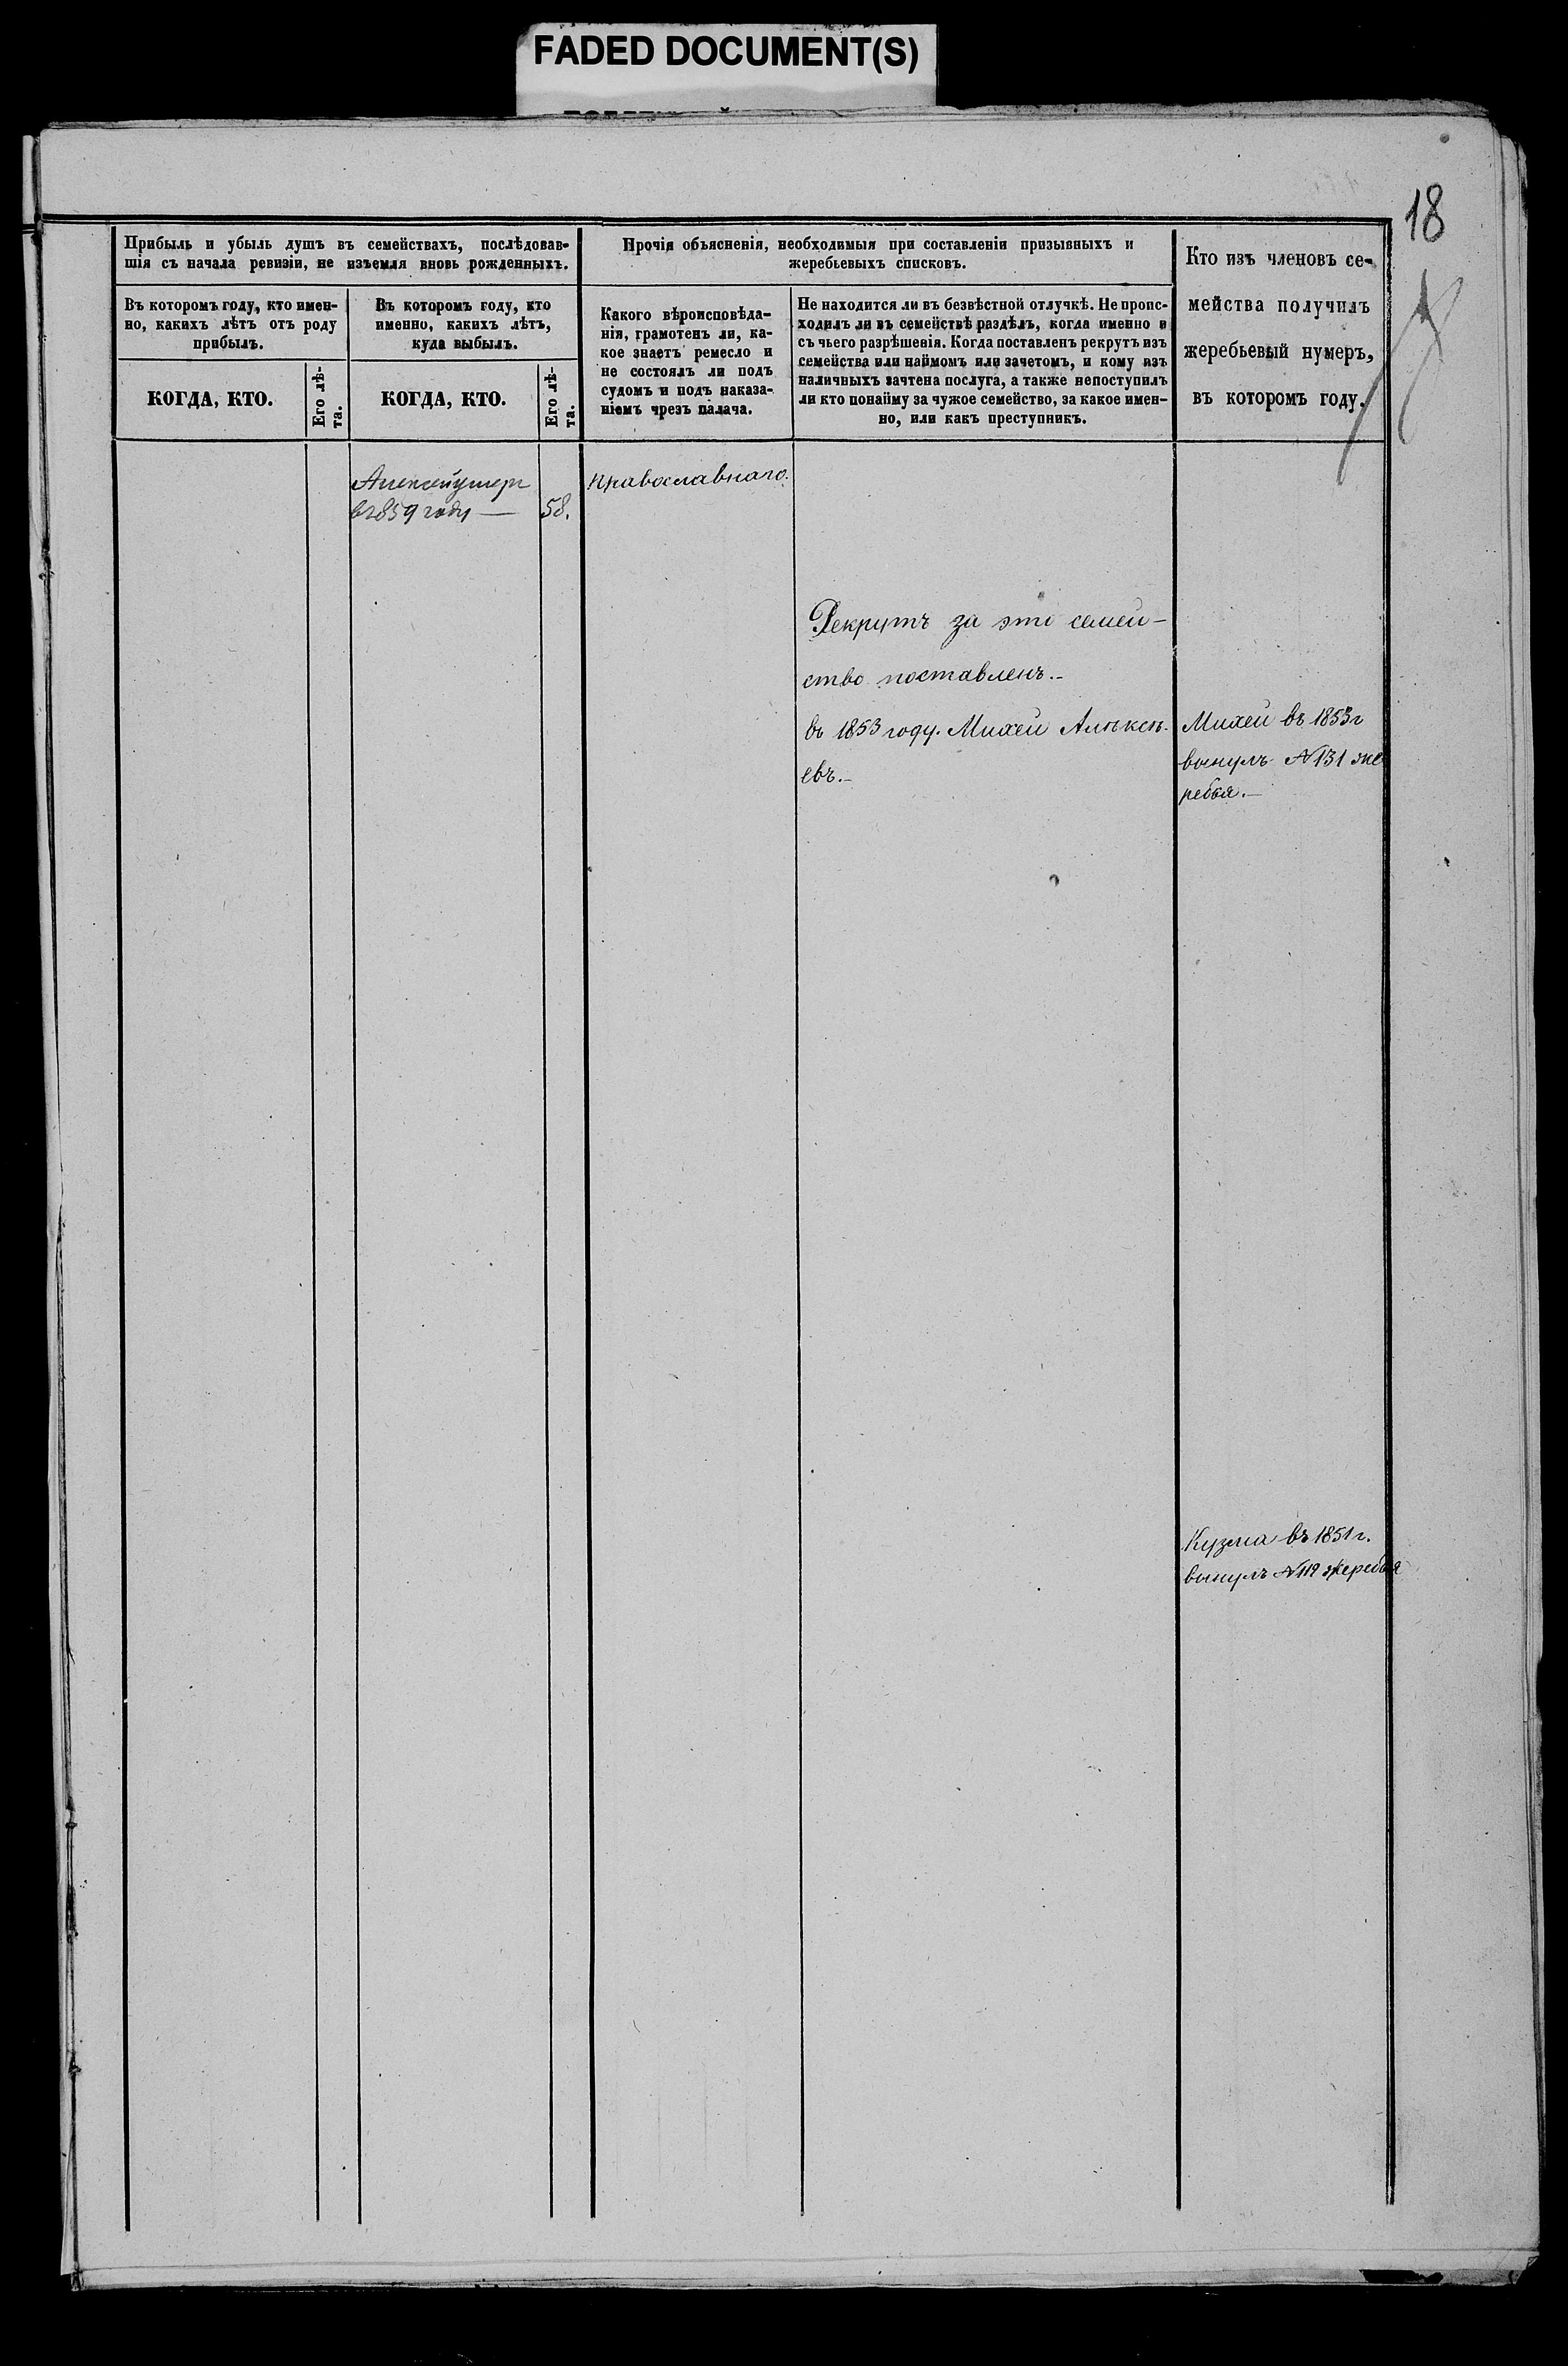 FADED DOCUMENT(S)
18
Прибыль и убыль душъ въ семействахъ, послѣдовав-
шія съ начала ревизіи, не изъемля вновь рожденныхъ.
Въ которомъ году, кто имен-
но, какихъ лѣтъ отъ роду
прибылъ.
КОГДА, КТО.
Его лѣ-
та.
Въ которомъ году, кто
именно, какихъ лѣтъ,
куда выбылъ.
КОГДА, КТО.
Его лѣ-
та.
Прочія объясненія, необходимыя при составленіи призывныхъ и
жеребьевыхъ списковъ.
Какого вѣроисповѣда-
нія, грамотенъ ли, ка-
кое знаетъ ремесло и
не состоялъ ли подъ
судомъ и подъ наказа-
ніемъ чрезъ палача.
Не находится ли въ безвѣстной отлучкѣ. Не проис-
ходилъ ли въ семействѣ раздѣлъ, когда именно и
съ чьего разрѣшенія. Когда поставленъ рекрутъ изъ
семейства или наймомъ или зачетомъ, и кому изъ
наличныхъ зачтена послуга, а также непоступилъ
ли кто понайму за чужое семейство, за какое имен-
но, или какъ преступникъ.
Кто изъ членовъ се-
мейства получилъ
жеребьевый нумеръ,
въ которомъ году.
Алексей умеръ
в 1859 году —
58.
Православнаго.
Рекрутъ за это семей-
ство поставленъ.-
въ 1853 году. Михей Алѣксѣ-
евъ.-
Михей въ 1853 г
вынулъ №131 же
ребья.—
Кузма въ 1851 г.
вынулъ №119 жеребья